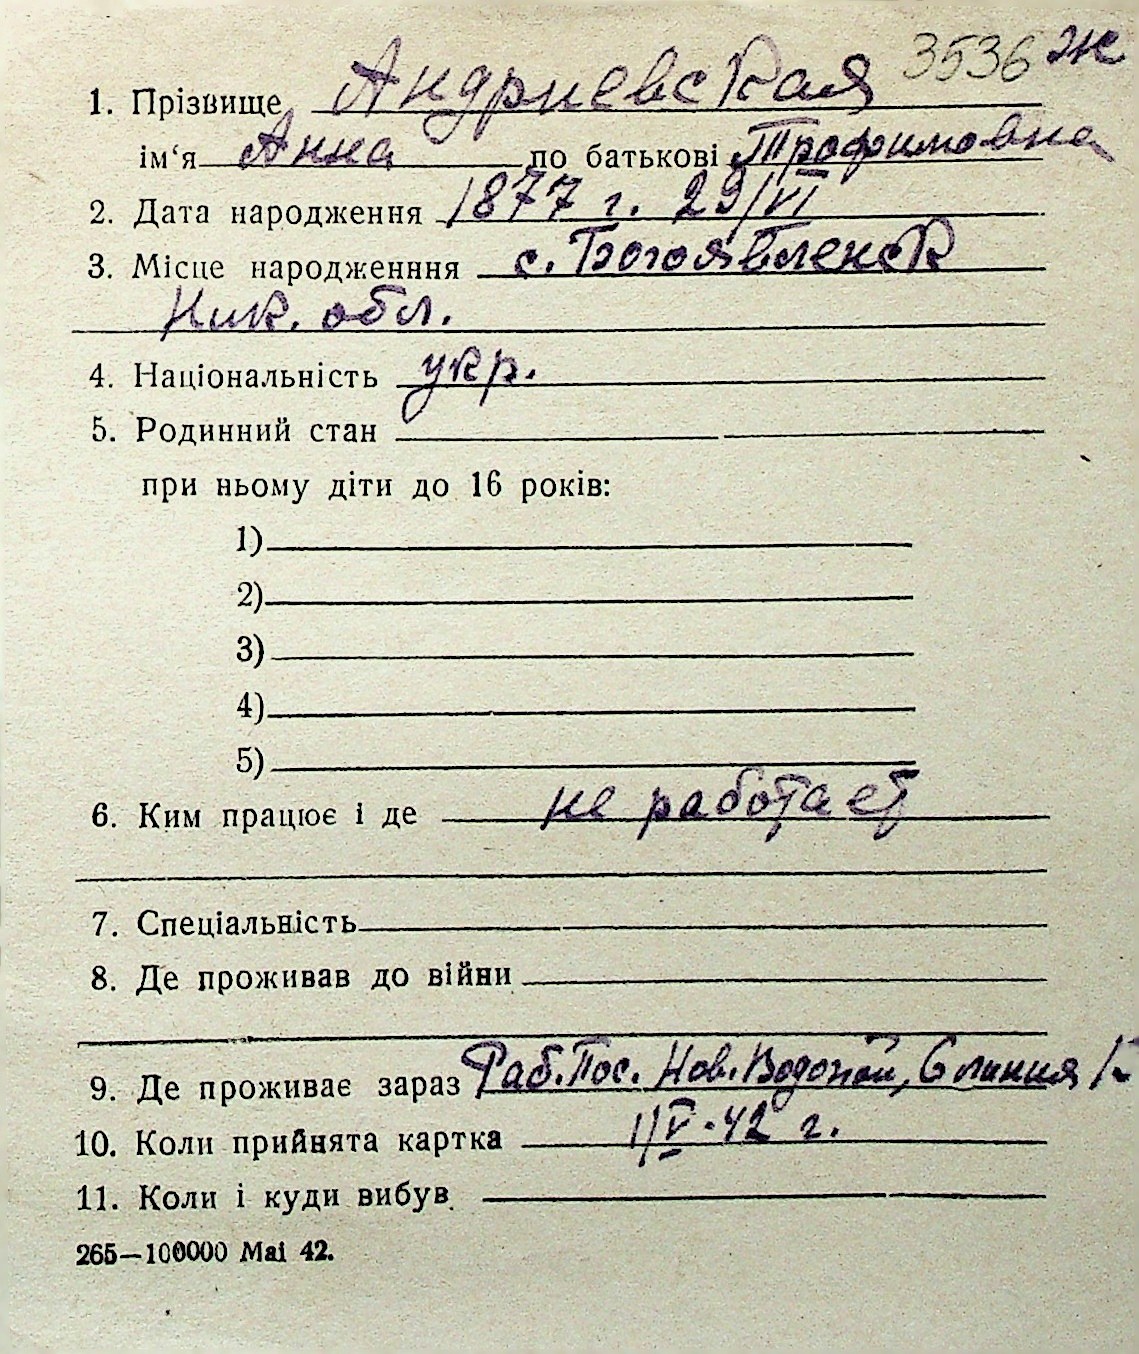 3536 ж
1. Прізвище Андриевская
ім‘я Анна по батькові Трофимовна
2. Дата народження 1877 г. 29/VI
3. Місце народженння с. Богоявленск
Ник. обл.
4. Національність укр.
5. Родинний стан
при ньому діти до 16 років:
1)
2)
3)
4)
5)
6. Ким працює і де не работает
7. Спеціальність
8. Де проживав до війни
9. Де проживає зараз Раб. Пос. Нов. Водопой, 6 линия
10. Коли прийнята картка 1/V-42 г.
11. Коли і куди вибув
265—100000 Mai 42.